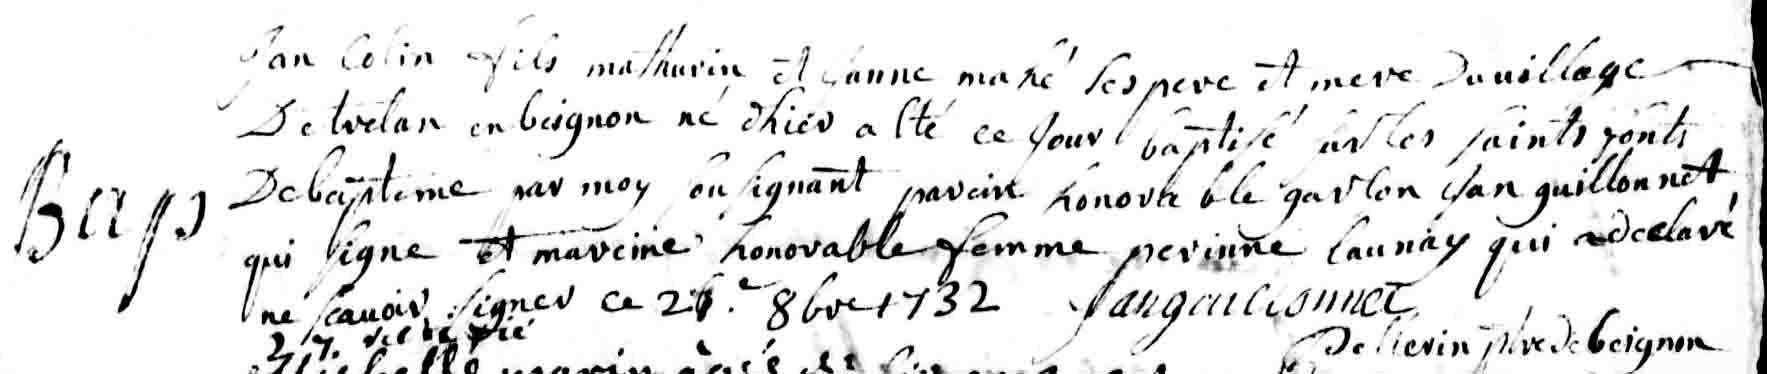 Jan Colin fils mathurin et Janne mahé ses pere et mere du uillage
De trelan en beignon né d'hier a été ce jour baptisé sur les saints fonts
Baps
De bapteme par moy sousignant parein honorable garson jan guillonnet
qui signe et mareine honorable femme perinne launay qui a declaré
ne scauoir signer ce 8bre 1732 Janguillonnet
27.
p̄bre de beignon